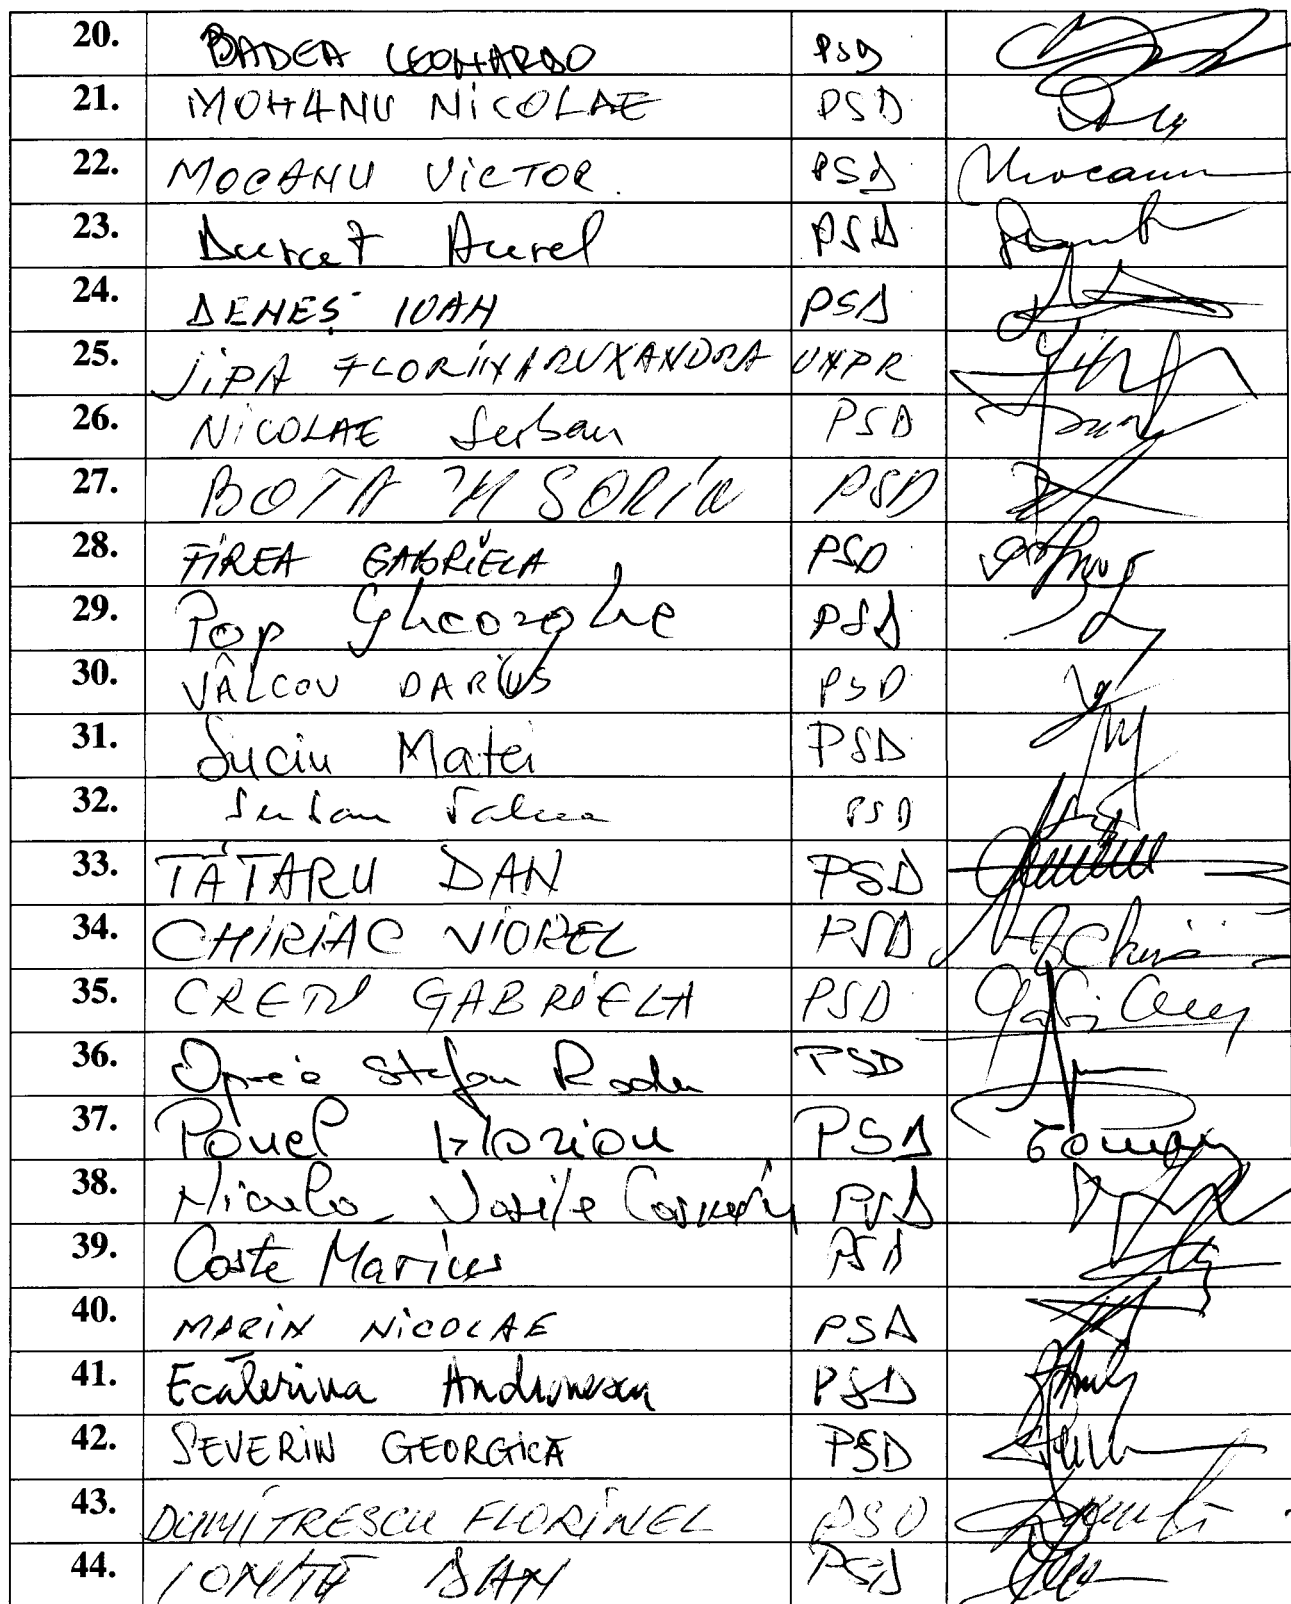 20. BADEA LEONARDO PSD
21. MOHANU NICOLAE PSD
22. MOCANU VICTOR PSD Mocanu
23. Durcet Aurel PSD
24. DENEȘ IOAN PSD
25. JIPA FLORINA RUXANDRA UNPR
26. NICOLAE Serban PSD
27. BOTA M SORIN PSD
28. FIREA GABRIELA PSD
29. Pop Gheorghe PSD
30. VÂLCOV DARIUS PSD
31. Suciu Matei PSD
32. Serban Valeca PSD
33. TĂTARU DAN PSD
34. CHIRIAC VIOREL PSD
35. CRETU GABRIELA PSD
36. Oprea Stefan Radu PSD
37. Pavel Marian PSD
38. Nicula Vasile Cosmin PSD
39. Coste Marius PSD
40. MARIN NICOLAE PSD
41. Ecaterina Andronescu PSD
42. SEVERIN GEORGICĂ PSD
43. DUMITRESCU FLORINEL PSD
44. IONIȚĂ DAN PSD